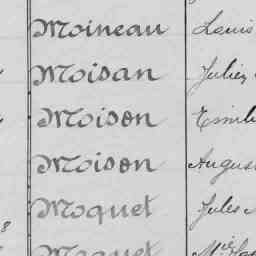 Moineau Louis
Moisan Julien
Moison
Moison August
Moquet Jules
Moquet
8